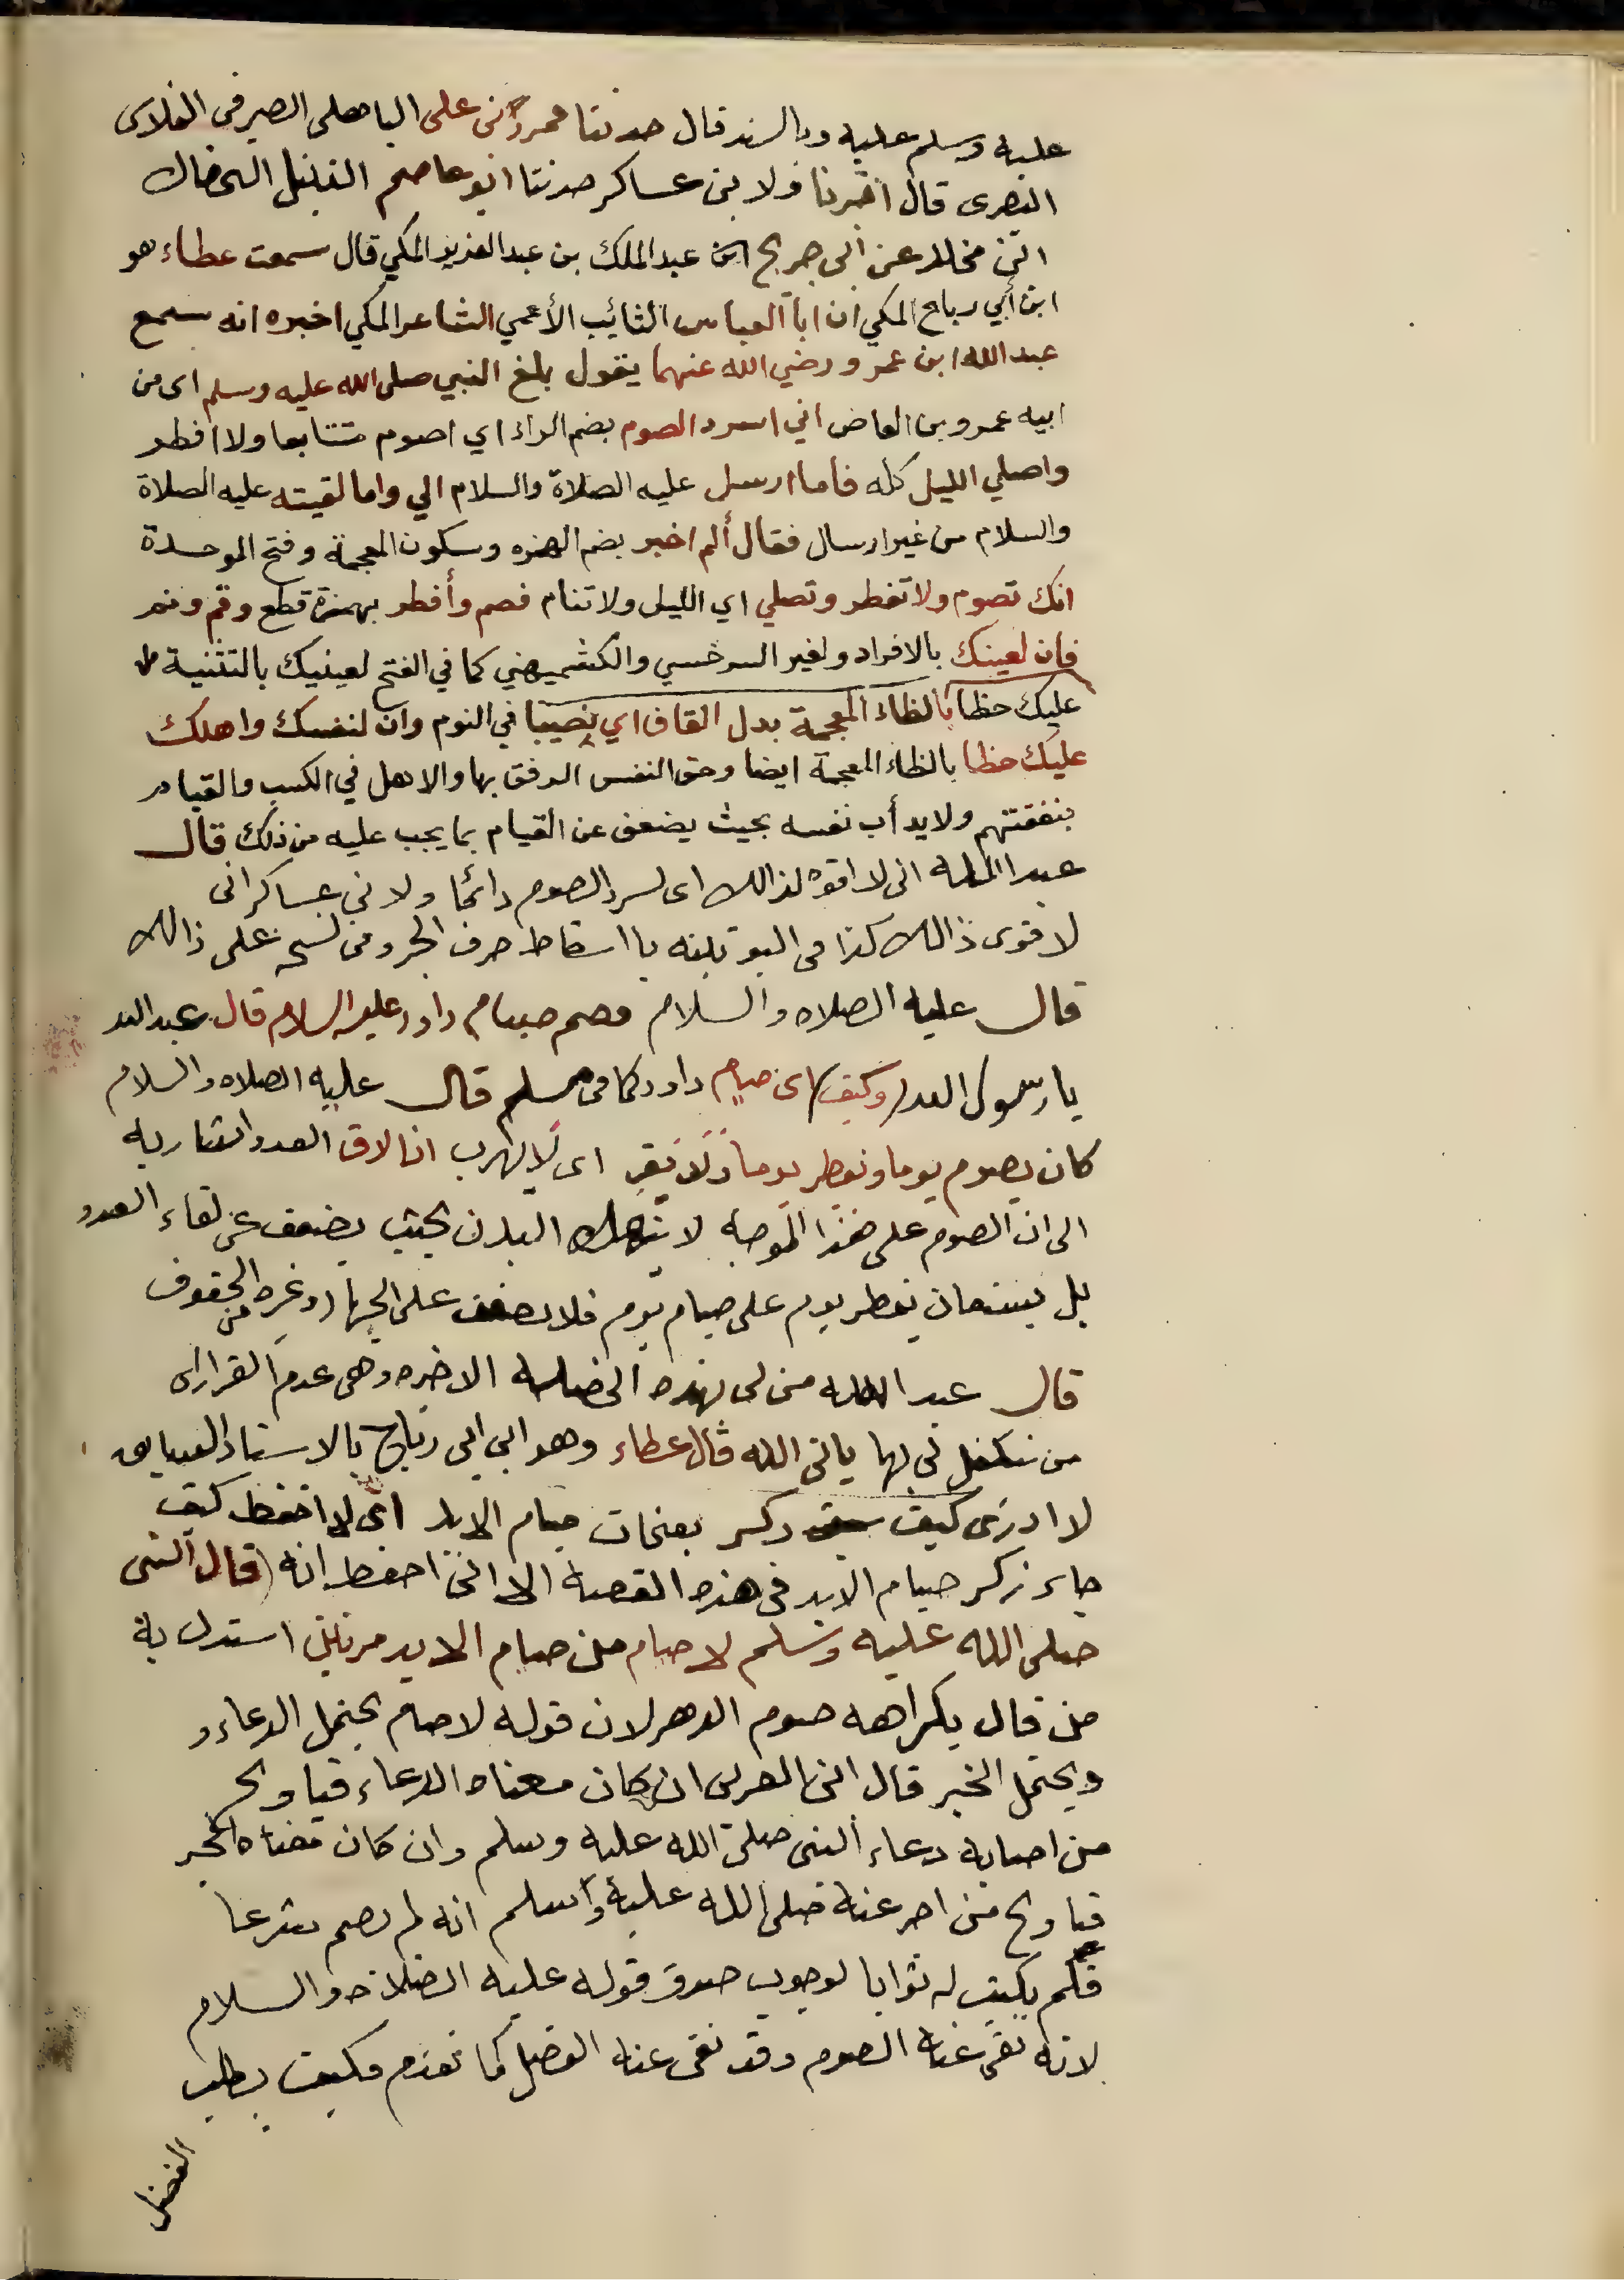 عليه وسلم عليه وبالسند قال حدثنا عمرو بن على الباهلى الصيرفى الفلاس
البصرى قال اخبرنا ولابن عساكر حدثنا ابو عاصم النبيل الضحاك
ابن مخلد عن ابى جريج ابن عبد الملك بن عبد العزيز المكي قال سمعت عطاء هو
ابن أبي رباح المكي ان ابا العباس الثائب الأعمي الشاعر المكي اخبره انه سمع
عبد الله ابن عمرو رضي الله عنهما يقول بلغ النبي صلى الله عليه وسلم اى من
ابيه عمرو بن العاص اني اسرد الصوم بضم الراء اي اصوم متتابعا ولا افطر
واصلي الليل كله فاما ارسل عليه الصلاة والسلام الي واما لقيته عليه الصلاة
والسلام من غير ارسال فقال ألم اخبر بضم الهمزه وسكون المعجمة وفتح الموحدة
انك تصوم ولا تفطر وتصلي اي الليل ولا تنام فصم وأفطر بهمزة قطع وقم ونم
فان لعينك بالافراد ولغير السرخسي والكشميهني كما في الفتح لعينيك بالتثنية
عليك حظا بالظاء المعجمة بدل القاف اي نصيبا في النوم وان لنفسك واهلك
عليك حظا بالظاء المعجمة ايضا وحق النفس الرفق بها والاهل في الكسب والقيام
بنفقتهم ولا يدأب نفسه بحيث يضعف عن القيام بما يجب عليه من ذلك قال
عبد الله انى لا اقوى لذالك اى لسرد الصوم دائما ولابن عساكر انى
لا قوى ذالك كذا فى اليونينه باسقاط حرف الجر وفى نسخه على ذالك
قال عليه الصلاه والسلام فصم صيام داود عليه السلام قال عبد الله
يا رسول الله (وكيف) اى صيام داود كما فى مسلم قال عليه الصلاه والسلام
كان يصوم يوما ويفطر يوما ولا يفر اى لا يهرب اذا لاق العدو اشاربه
الى ان الصوم على هذا الوجه لا ينهك البدن بحيث يضعف عن لقاء العدو
بل يستعان بفطر يوم على صيام يوم فلا يضعف على الجهاد وغيره من الحقوق
قال عبد الله من لى بهذه الخصله الاخيره وهى عدم الفرار اى
من يتكفل لى بها يا نبى الله قال عطاء وهو ابن ابى رباح بالاسناد السابق
لا ادرى كيف ذكر بفتحات صيام الابد اى لا احفظ كيف
جاء ذكر صيام الابد فى هذه القصة الا انى احفظ انه (قال النبى
صلى الله عليه وسلم لا صام من صام الابد مرتين استدل به
من قال بكراهه صوم الدهر لان قوله لا صام يحتمل الدعاء و
ويحتمل الخبر قال ابن العربى ان كان معناه الدعاء فيا ويح
من اصابه دعاء النبى صلى الله عليه وسلم وان كان معناه الخبر
فيا ويح من اخبر عنه صلى الله عليه وسلم انه لم يصم شرعا
فلم يكتب له ثوابا لوجوب صدق قوله عليه الصلاه والسلام
لانه نفى عنه الصوم وقد نفى عنه الفضل كما تقدم فكيف يطلب
الفضل